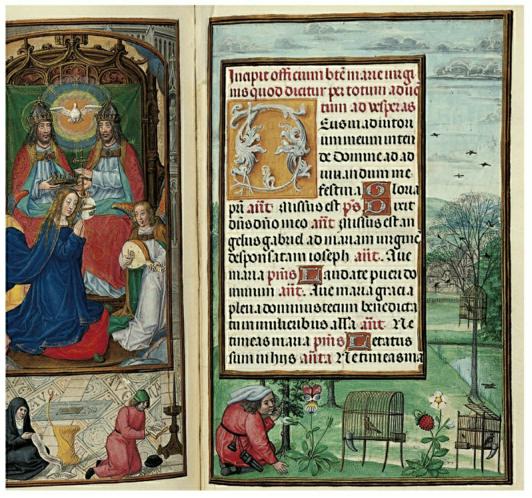 Incipit officium bte marie virgi
nis quod dicitur per totum aduē
tum ad vesperas
Deus in adiutori
um meum inten
de Domine ad ad
iuuandum me
festina Gloria
pri añt Missus est ps Dixit
dñs dño meo añt Missus est an
gelus gabriel ad mariam virginē
desponsatam ioseph añt. Aue
maria psms Laudate pueri do
minum añt. Aue maria gracia
plena dominus tecum benedicta
tu in mulieribus alla añt Ne
timeas maria psms Letatus
sum in hys añta Ne timeas ma